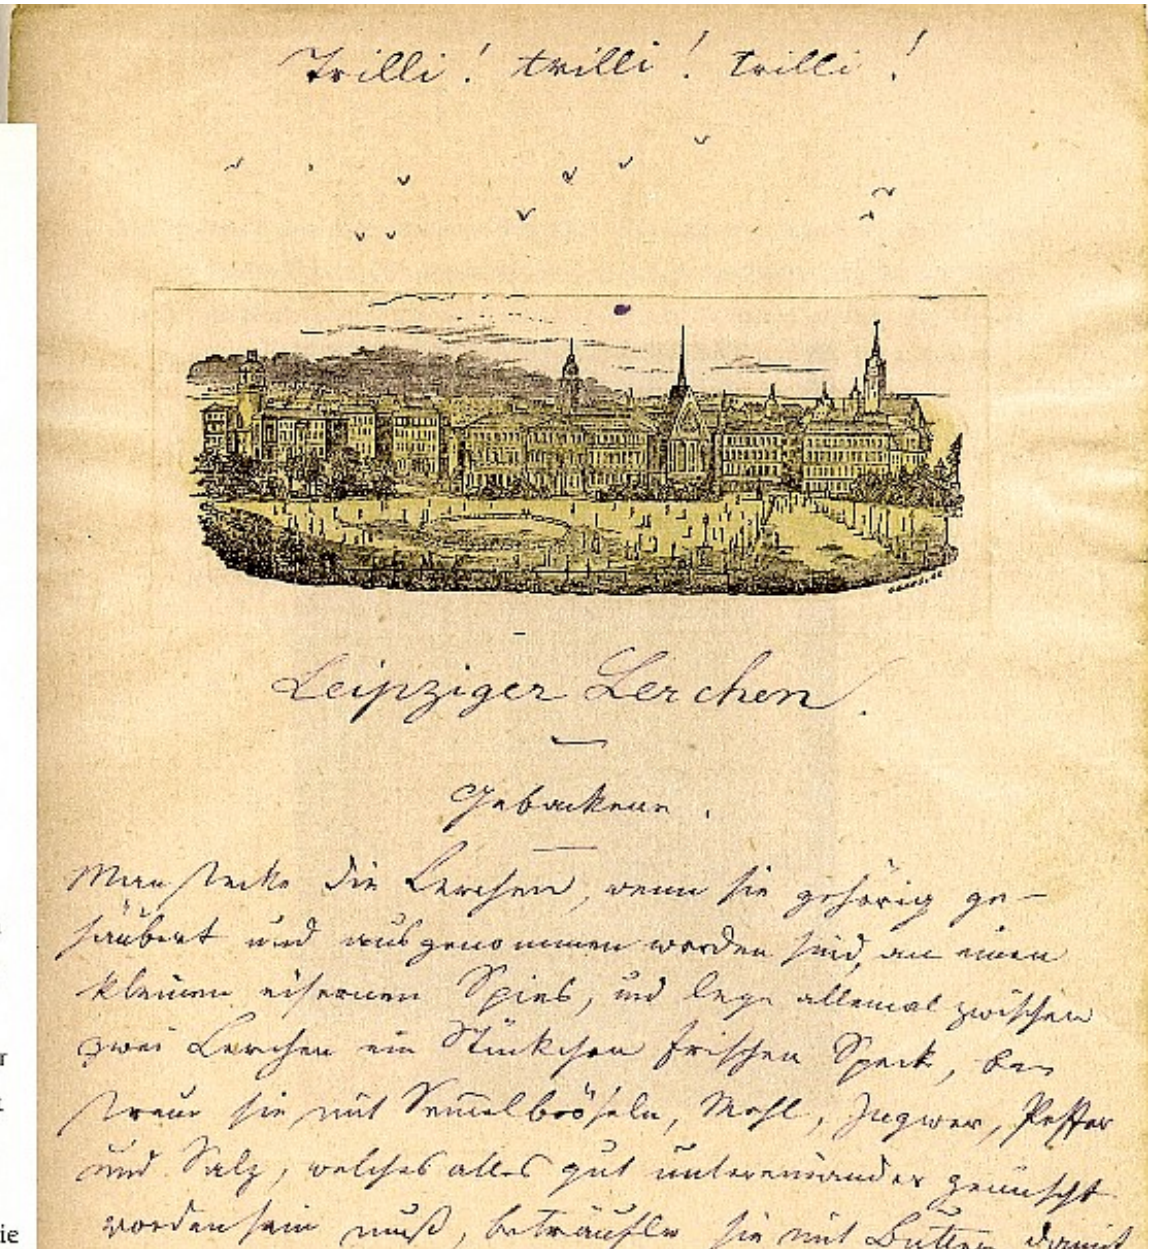 Trilli! trilli! trilli!
Leipziger Lerchen.
Gebackene.
Man stecke die Lerchen, wenn sie gehörig ge-
säubert und ausgenommen worden sind, an einen
kleinen eisernen Spieß, und lege allemal zwischen
zwei Lerchen ein Stückchen frischen Speck, be-
streue sie mit Semmelbröseln, Mehl, Ingwer, Pfeffer
und Salz, welches alles gut untereinander gemischt
worden sein muß, beträufle sie mit Butter, damit
r
ie